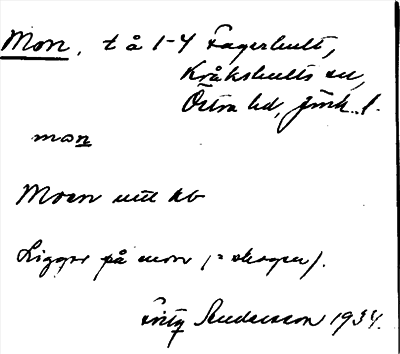 Mon, t å 1-4 Fagerhult,
Kråkshults sn,
Östra hd, Jönk. l.
mon
Moen utt kb
Ligger på mon (= skogen).
Fritz Andersson 1934.